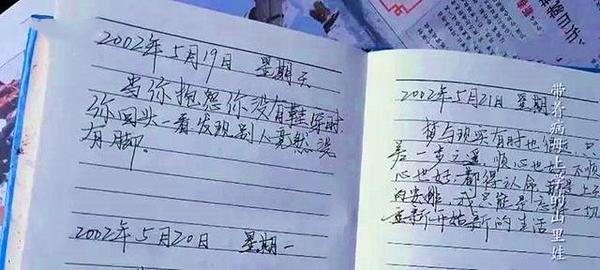 2002年5月19日 星期天
当你抱怨你没有鞋穿时,
你回头一看发现别人竟然没
有脚.
2002年5月20日 星期一
2002年5月21日 星期
梦与现实有时也
差一步之遥 顺心也好不顺
心也好 都得认命
的安排 我只能 一切
重新开始新的生活
带着病 上 的山里娃